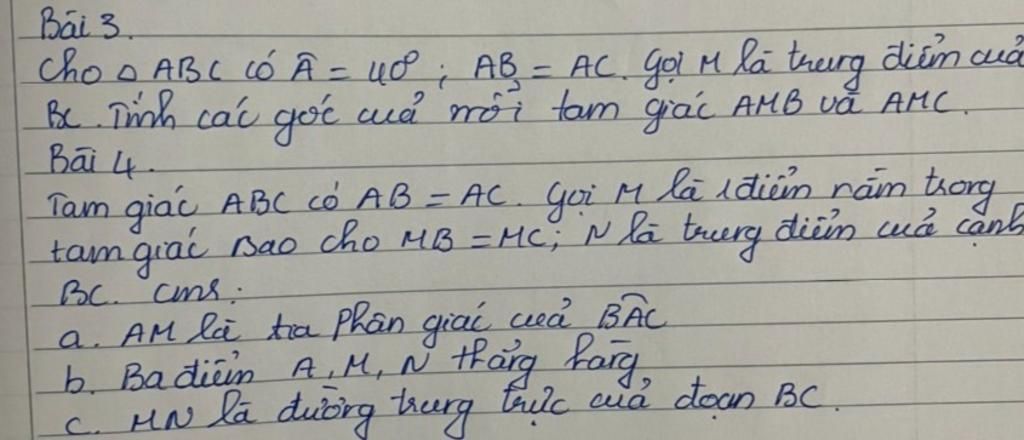 Bài 3.
Cho △ ABC có Â = 40°; AB = AC. Gọi M là trung điểm của
BC. Tính các góc của mỗi tam giác AMB và AMC.
Bài 4.
Tam giác ABC có AB = AC. Gọi M là 1 điểm nằm trong
tam giác sao cho MB = MC; N là trung điểm của cạnh
BC. CMR:
a. AM là tia phân giác của \widehat{BAC}
b. Ba điểm A, M, N thẳng hàng
c. MN là đường trung trực của đoạn BC.